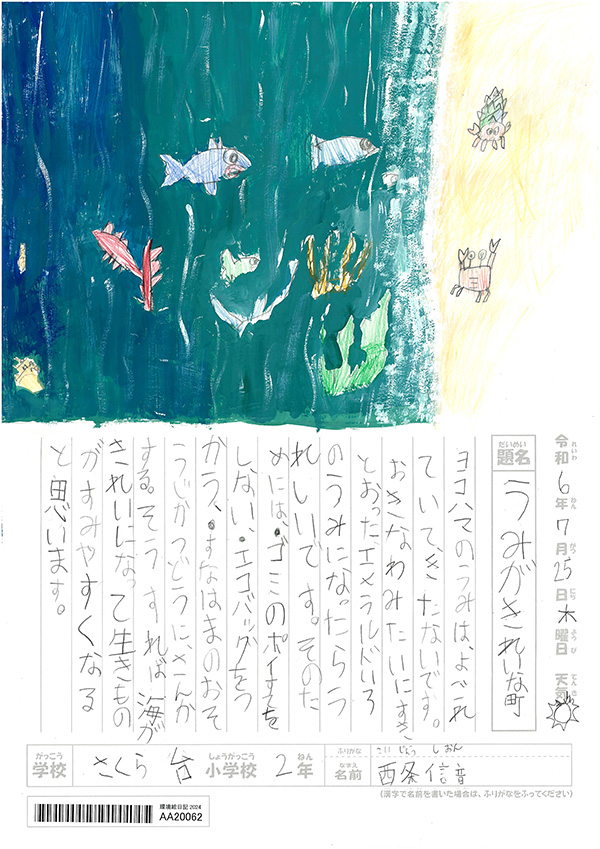 令和6年7月25日木曜日 天気
れいわ ねん がつ にち ようび てんき
だいめい
題名
うみがきれいな町
ヨコハマのうみは、よごれ
ていて、きたないです。
おきなわみたいにすき
とおったエメラルドいろ
のうみになったらう
れしいです。そのた
めには、ゴミのポイすてを
しない、エコバッグをつ
かう、すなはまのおそ
うじかつどうに、さんか
する。そうすれば海が
きれいになって生きもの
がすみやすくなる
と思います。
がっこう しょうがっこう ねん
学校 さくら台 小学校 2年
ふりがな さいじょう しおん
なまえ
名前 西条信音
(漢字で名前を書いた場合は、ふりがなをふってください)
環境絵日記 2024
AA20062